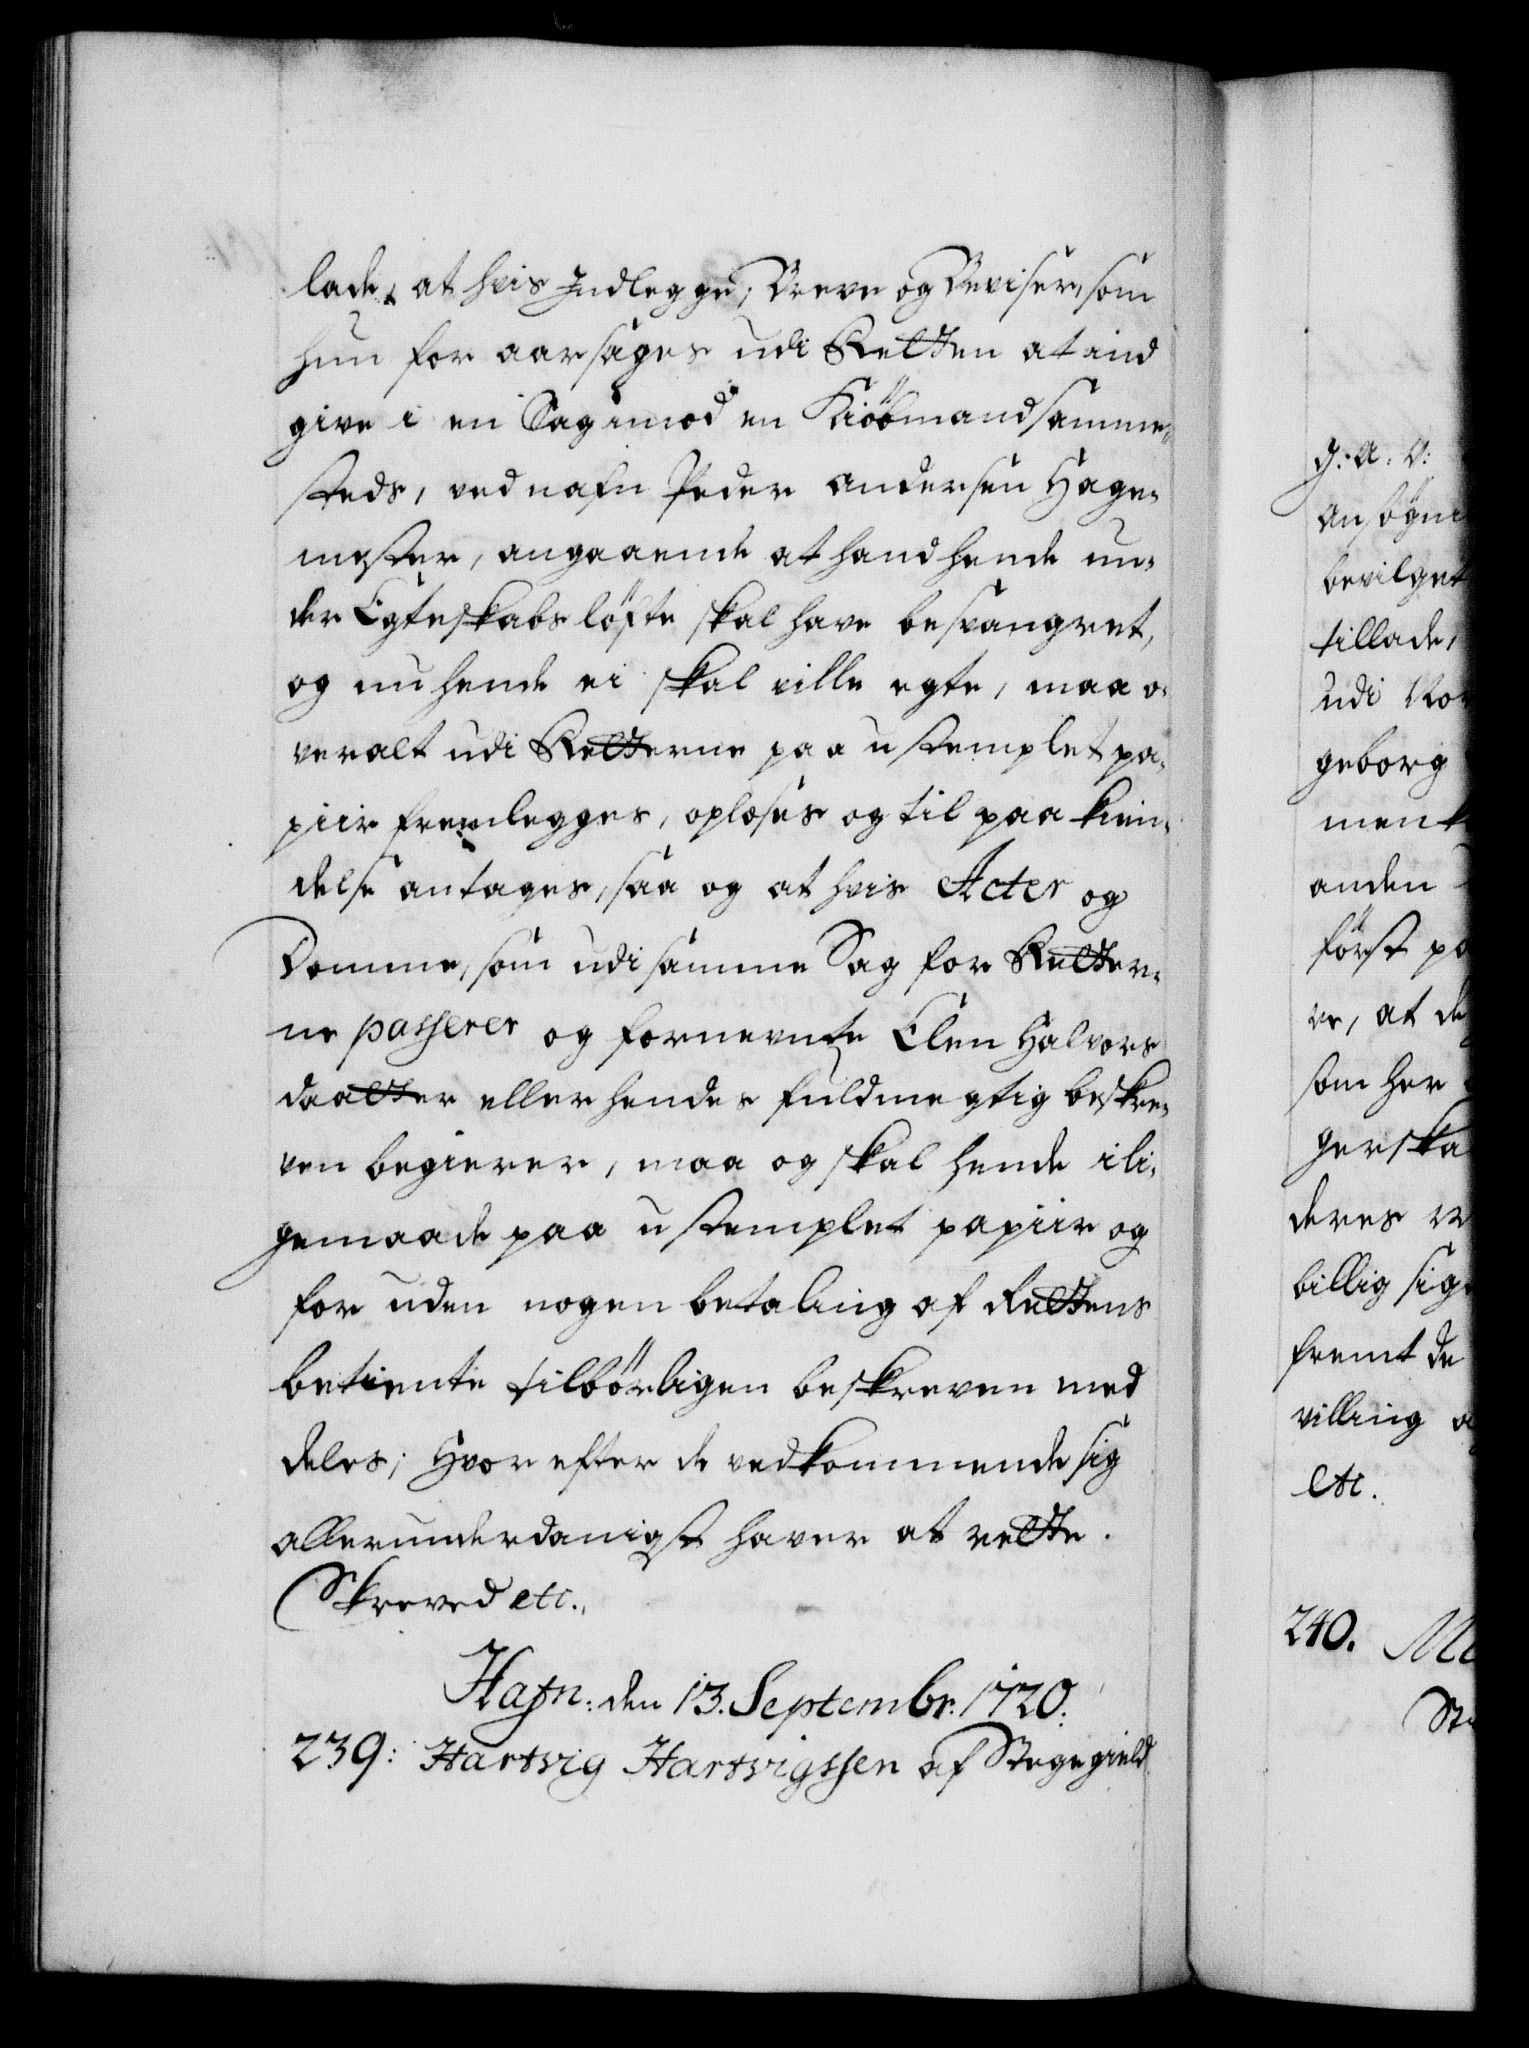 lade, at hvis Indlegge, Breve og Beviser, som
hun for aarsages udi Retten at ind
give i en Sag imod en Kiöbmand samme,
steds, ved nafn Peder Andersen Hage,
mester, angaaende at hand hende un,
der Egteskabs löfte skal have besvangret,
og nu hende ei skal ville egte, maa o,
veralt udi Retterne paa ustemplet pa,
piir fremlegges, oplæses og til paa kien,
delse antages, saa og at hvis Acter og
Domme, som udi samme Sag for Retter,
ne passerer og fornevnte Elen Halvors
daatter eller hendes fuldmegtig beskre,
ven begierer, maa og skal hende i li,
gemaade paa ustemplet papiir og
for uden nogen betaling af Rettens
betiente tilbörligen beskreven med
deles; Hvor efter de vedkommende sig
allerunderdanigst haver at rette.
Skreved etc.
Hafn: den 13. Septembr: 1720.
239: Hartvig Hartvigssen af Stegegield
J: A: V:
ansögni
bevilget
tillade,
udi No
geborg
ment
anden
först pa
ve, at de
som her
gerska
deres
billig sig
fremt de
villing
etc.
240.